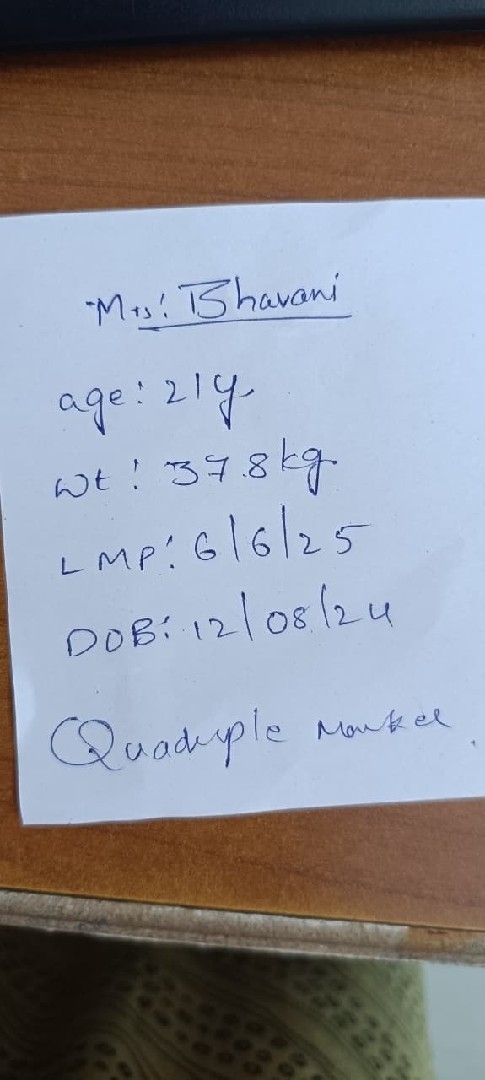 Mrs: Bhavani
age: 21y
wt: 37.8kg
LMP: 6/6/25
DOB: 12/08/24
Quadruple Marker